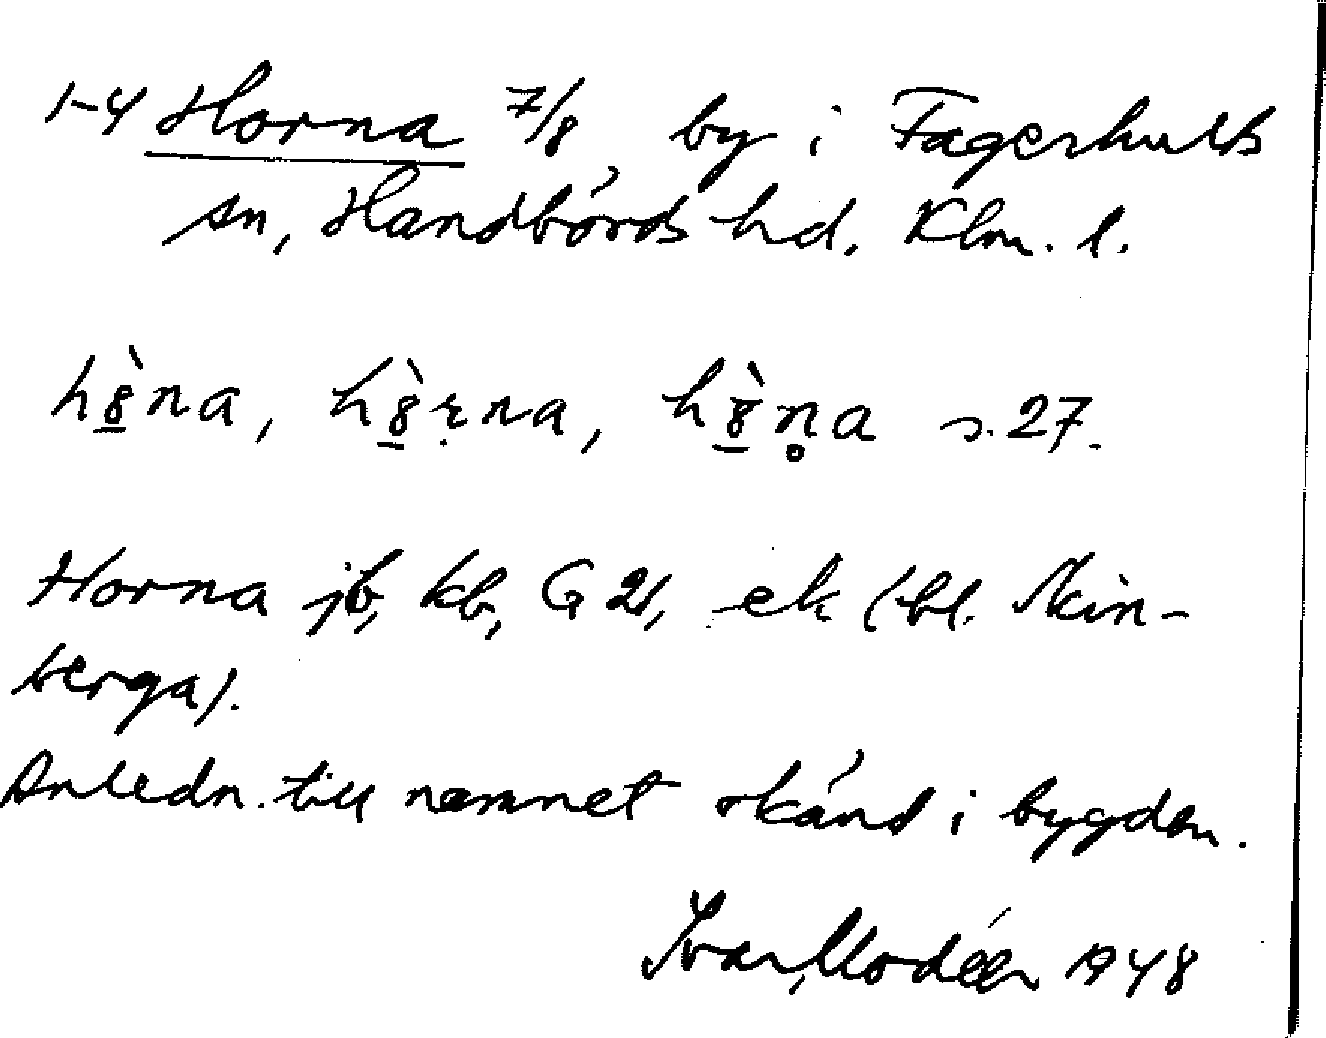 1-4 Horna 7/8, by i Fagerhults
sn, Handbörds hd. Klm. l.
hȣ̀na, hȣ̀rna, hȣ̀n̥a s. 27.
Horna jb, kb, G 21, ek (bl.
berga).
Anledn. till namnet okänd i bygden.
Ivar Modéer 1948